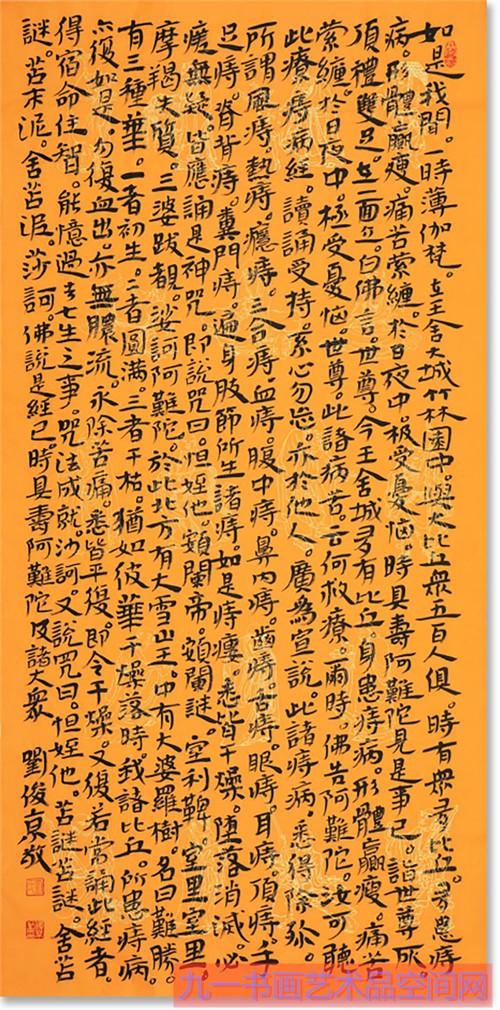 如是我聞。一時薄伽梵。在王舍大城竹林園中。與大比丘衆五百人俱。時有衆多比丘。多患痔
病。形體羸瘦。痛苦縈纏。於日夜中。极受憂惱。時具壽阿難陀見是事已。詣世尊所
頂禮雙足。在一面立。白佛言。世尊。今王舍城多有比丘。身患痔病。形體羸瘦。痛苦
縈纏。於日夜中。極受憂惱。世尊。此諸病苦。云何救療。爾時。佛告阿難陀。汝可聽
此療痔病經。讀誦受持。系心勿忘。亦於他人。廣為宣説。此諸痔病。悉得除殄。
所謂風痔。熱痔。癊痔。三合痔。血痔。腹中痔。鼻内痔。齒痔。舌痔。眼痔。耳痔。頂痔。手
足痔。脊背痔。糞門痔。遍身肢節所生諸痔。如是痔瘻。悉皆干燥。墮落消滅。必
瘥無疑。皆應誦是神咒。即説咒曰。怛姪他。頞闌帝。頞闌謎。室利鞞。室里室里。
摩羯失質。三婆跋覩。娑訶阿難陀。於此北方有大雪山王。中有大娑羅樹。名曰難勝。
有三種華。一者初生。二者圓满。三者干枯。猶如彼華干燥落時。我諸比丘。所患痔病。
亦復如是。勿復血出。亦無膿流。永除苦痛。悉皆平復。即令干燥。又復若常誦此經者。
得宿命住智。能憶過去七生之事。咒法成就。沙訶。又説咒曰。怛姪他。苫謎苫謎。舍苫
謎。苫末泥。舍苫泥。莎訶。佛説是經已。時具壽阿難陀及諸大衆 劉俊京敬
九一书画艺术品空间网